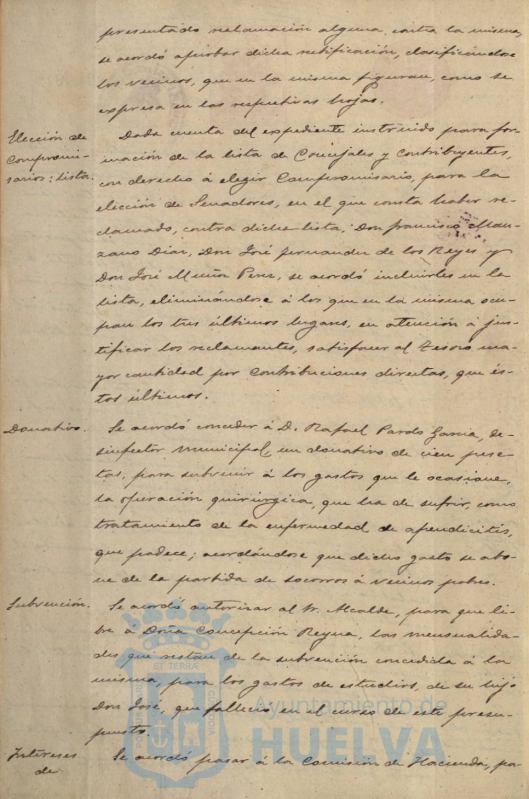 presentado reclamación alguna, contra la misma,
se acordó aprobar dicha rectificación, clasificándose
los vecinos, que en la misma figuran, como se
expresa en las respectivas hojas.
Elección de
Compromi-
sarios: lista.
Dada cuenta del expediente instruido para for-
mación de la lista de Concejales y contribuyentes,
con derecho á elegir Compromisario, para la
elección de Senadores, en el que consta haber re-
clamado, contra dicha lista, Don Francisco Man-
zano Diaz, Don José Fernandez de los Reyes y
Don José Muñoz Perez, se acordó incluirles en la
lista, eliminándose á los que en la misma ocu-
pan los tres últimos lugares, en atención á jus-
tificar los reclamantes, satisfacer al Tesoro ma-
yor cantidad por contribuciones directas, que és-
tos últimos.
Donativo.
Se acordó conceder á D. Rafael Pardo Garcia, de-
sinfector municipal, un donativo de cien pese-
tas, para subvenir á los gastos que le ocasione,
la operación quirúrgica, que ha de sufrir, como
tratamiento de la enfermedad de apendicitis,
que padece; acordándose que dicho gasto se abo-
ne de la partida de socorros á vecinos pobres.
Subvención.
Se acordó autorizar al Sr. Alcalde, para que li-
bre á Doña Concepción Reyna, las mensualida-
des que restan de la subvención concedida á la
misma, para los gastos de estudios, de su hijo
Don José, que falleció en el curso de este presu-
puesto.
Intereses
de
Se acordó pasar á la Comisión de Hacienda, pa-
Ayuntamiento de
HUELVA